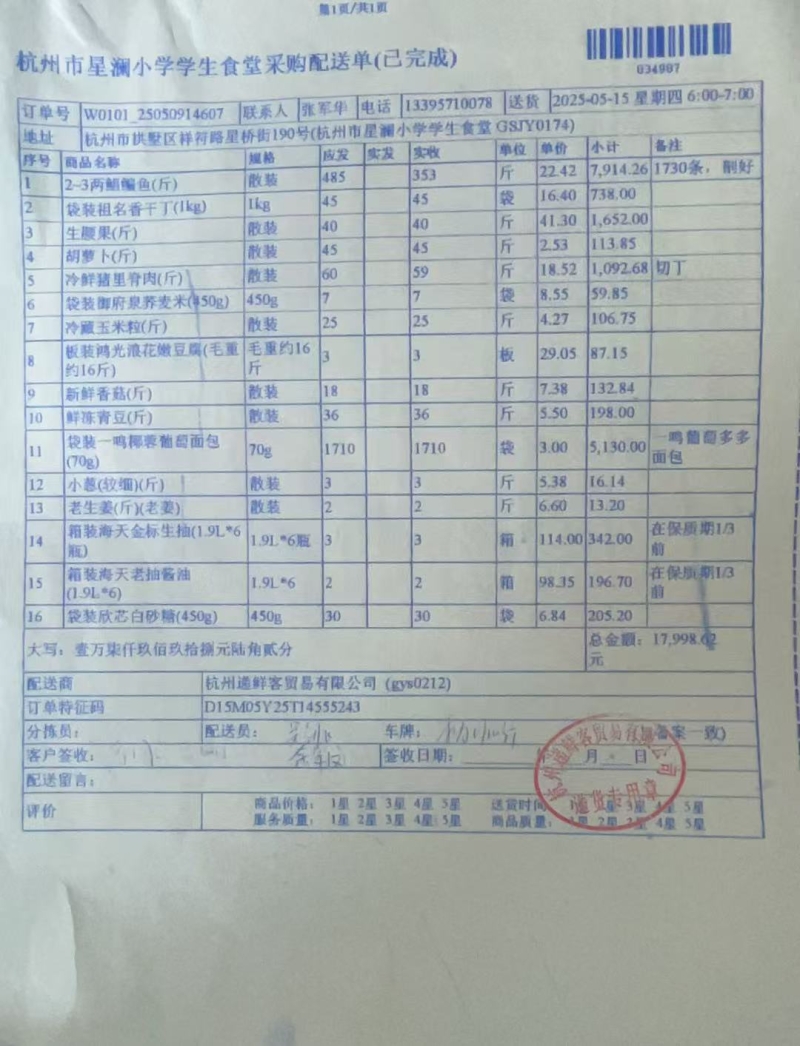 第1页/共1页
034907
杭州市星澜小学学生食堂采购配送单(已完成)
订单号 W0101_25050914607 联系人 张军华 电话 13395710078 送货 2025-05-15 星期四 6:00-7:00
地址 杭州市拱墅区祥符路星桥街190号(杭州市星澜小学学生食堂 GSJY0174)
序号 商品名称 规格 应发 实发 实收 单位 单价 小计 备注
1 2-3两鲳鳊鱼(斤) 散装 485 353 斤 22.42 7,914.26 1730条，剖好
2 袋装祖名香干丁(1kg) 1kg 45 45 袋 16.40 738.00
3 生腰果(斤) 散装 40 40 斤 41.30 1,652.00
4 胡萝卜(斤) 散装 45 45 斤 2.53 113.85
5 冷鲜猪里脊肉(斤) 散装 60 59 斤 18.52 1,092.68 切丁
6 袋装御府泉荞麦米(450g) 450g 7 7 袋 8.55 59.85
7 冷藏玉米粒(斤) 散装 25 25 斤 4.27 106.75
8 板装鸿光浪花嫩豆腐(毛重约16斤) 毛重约16斤 3 3 板 29.05 87.15
9 新鲜香菇(斤) 散装 18 18 斤 7.38 132.84
10 鲜冻青豆(斤) 散装 36 36 斤 5.50 198.00
11 袋装一鸣椰蓉葡萄面包(70g) 70g 1710 1710 袋 3.00 5,130.00 一鸣葡萄多多面包
12 小葱(较细)(斤) 散装 3 3 斤 5.38 16.14
13 老生姜(斤)(老姜) 散装 2 2 斤 6.60 13.20
14 箱装海天金标生抽(1.9L*6瓶) 1.9L*6瓶 3 3 箱 114.00 342.00 在保质期1/3前
15 箱装海天老抽酱油(1.9L*6) 1.9L*6 2 2 箱 98.35 196.70 在保质期1/3前
16 袋装欣芯白砂糖(450g) 450g 30 30 袋 6.84 205.20
大写：壹万柒仟玖佰玖拾捌元陆角贰分 总金额：17,998.62元
配送商 杭州递鲜客贸易有限公司 (gys0212)
订单特征码 D15M05Y25T14555243
分拣员： 配送员： 车牌： 备案一致)
客户签收： 签收日期： 月 日
配送留言：
评价 商品价格： 1星 2星 3星 4星 5星 送货时间 1星 2星 3星 4星 5星
服务质量： 1星 2星 3星 4星 5星 商品质量： 1星 2星 3星 4星 5星
杭州递鲜客贸易有限公司
送货专用章